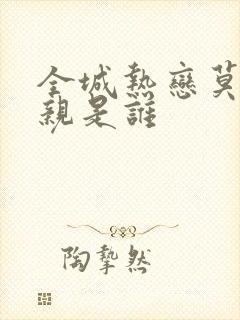 全城熱戀莫
親是誰
陶摯然